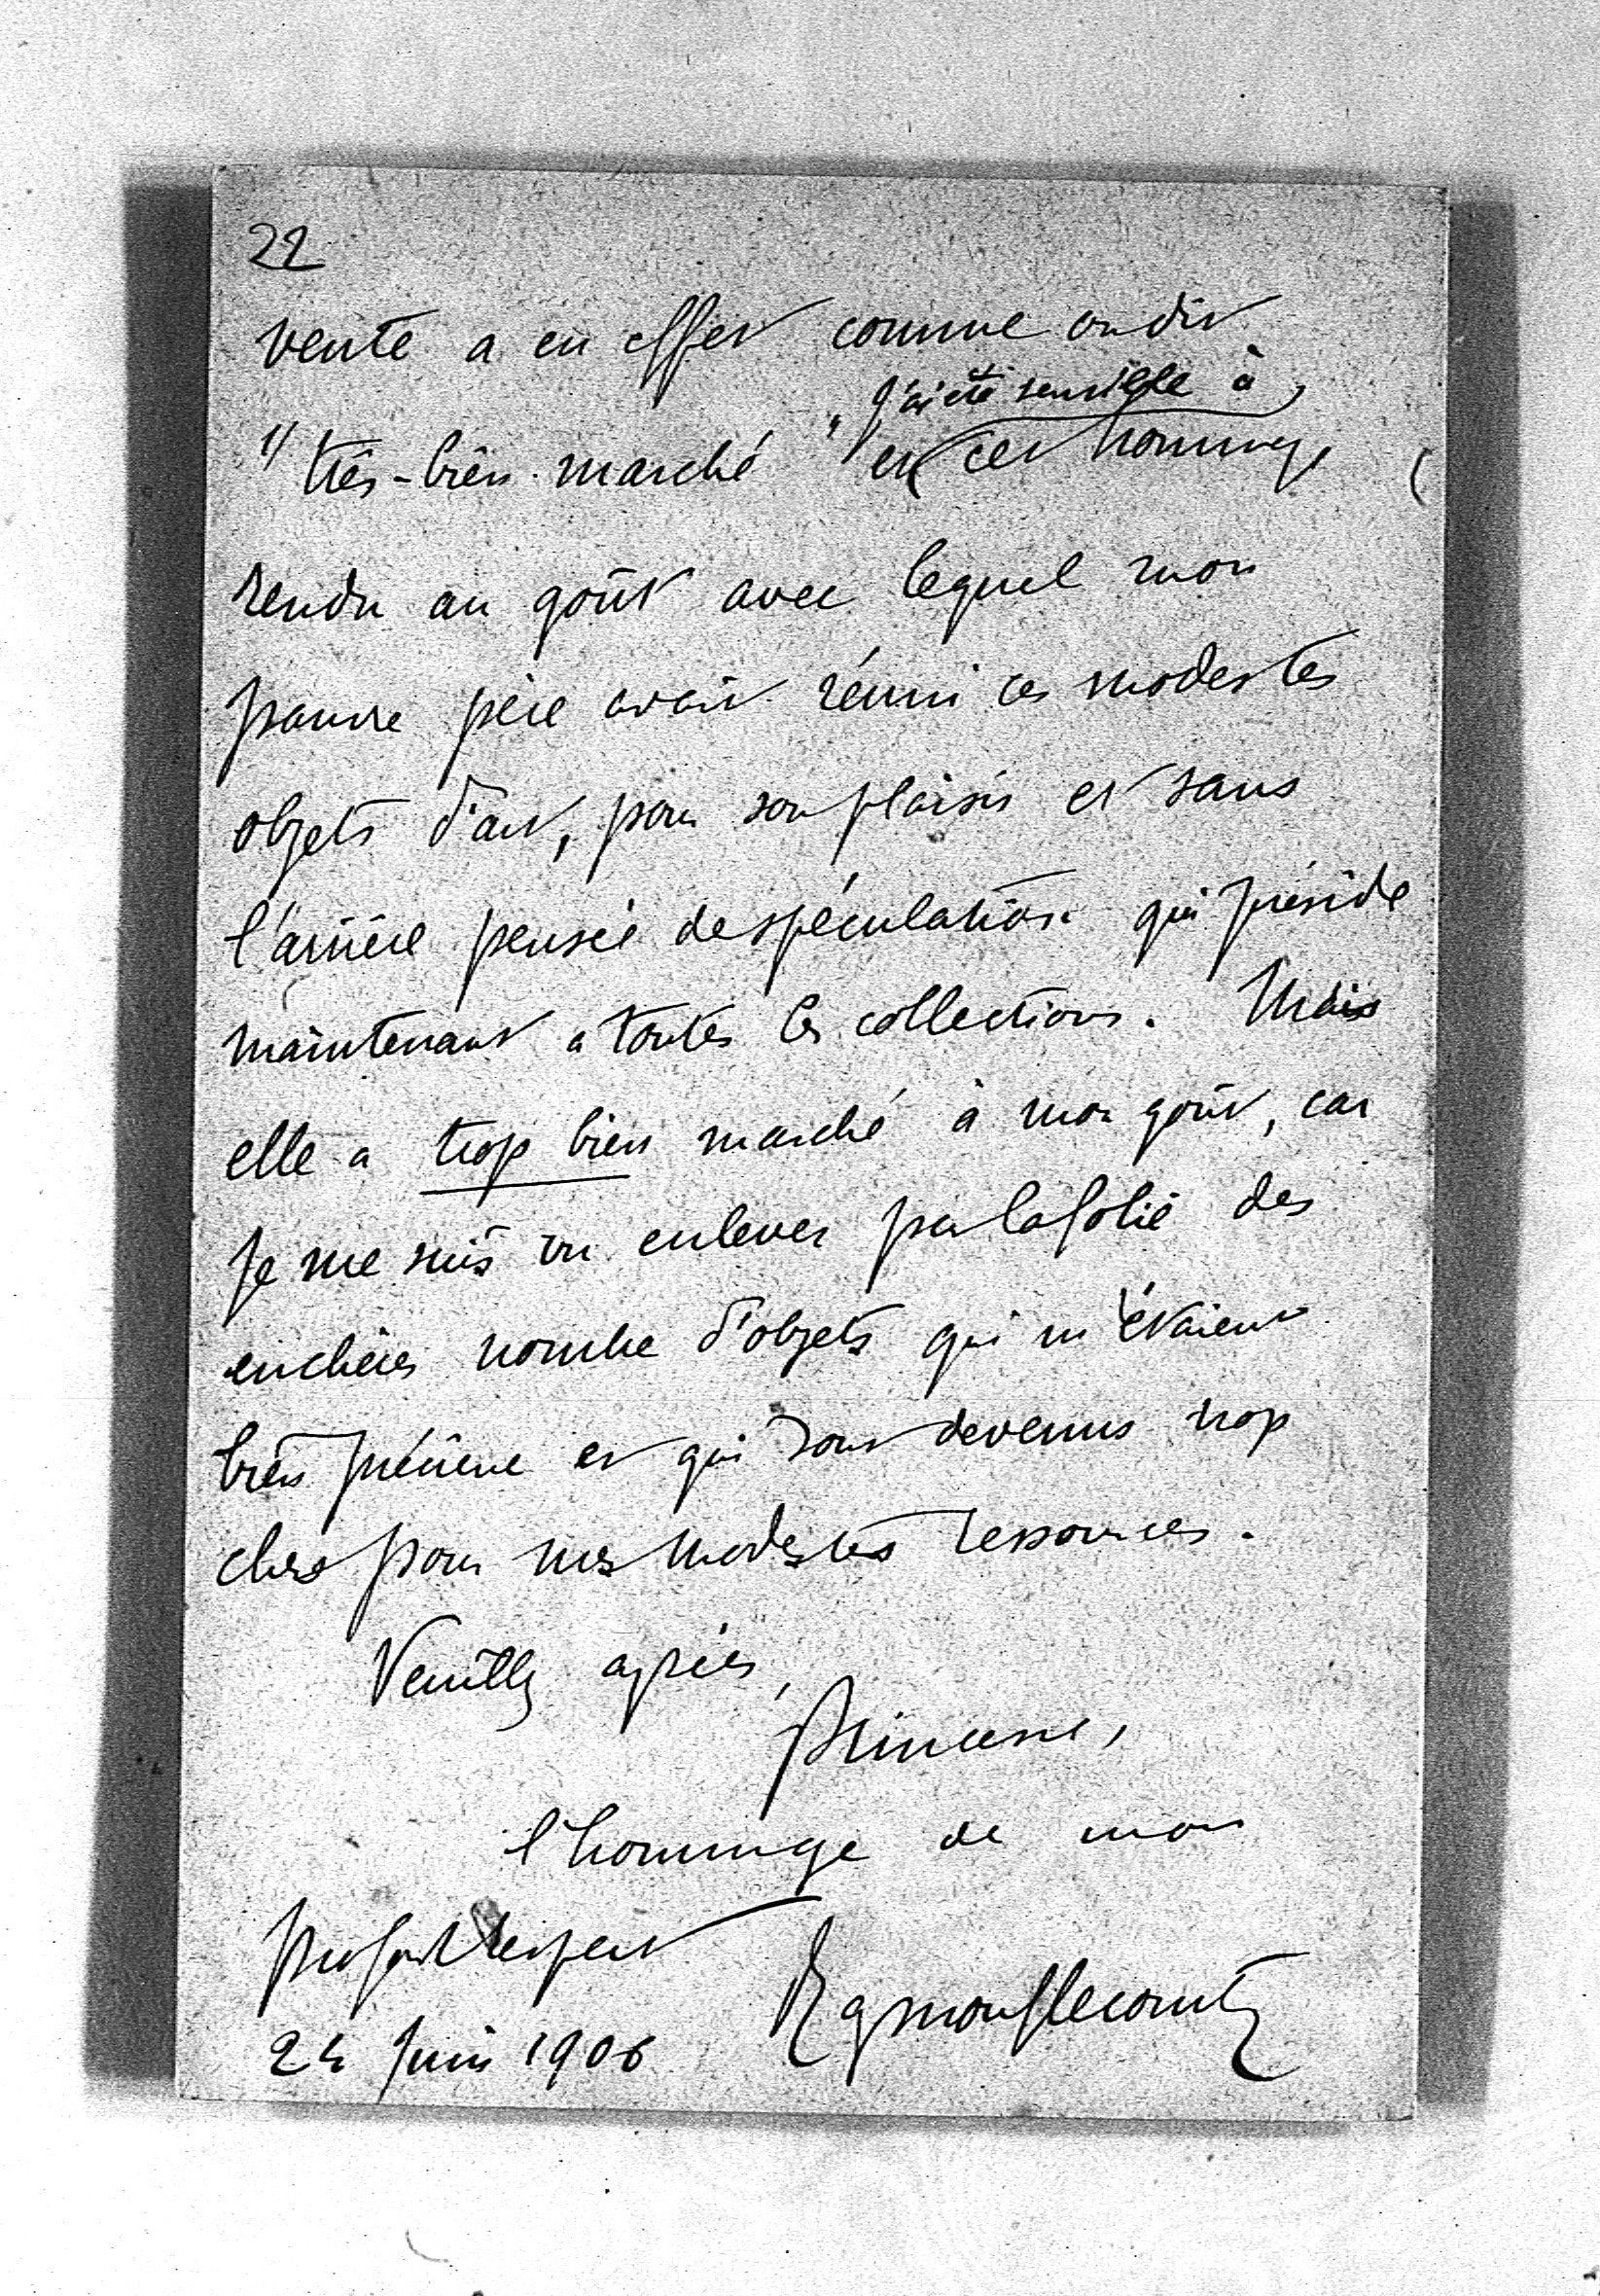 22
vente a en effet comme on dit
j'ai été sensible à
"très-bien marché" et cet hommage
rendu au goût avec lequel mon
pauvre père avait réuni ces modestes
objets d'art, pour son plaisir et sans
l'arrière pensée de spéculation qui préside
maintenant a toutes les collections. Mais
elle a trop bien marché à mon goût, car
je me suis vu enlever par la folie des
enchères nombre d'objets qui m'étaient
bien précieux et qui sont devenus trop
chers pour mes modestes ressources.
Veuillez agréer,
Princesse,
l'hommage de mon
profond respect
24 Juin 1906